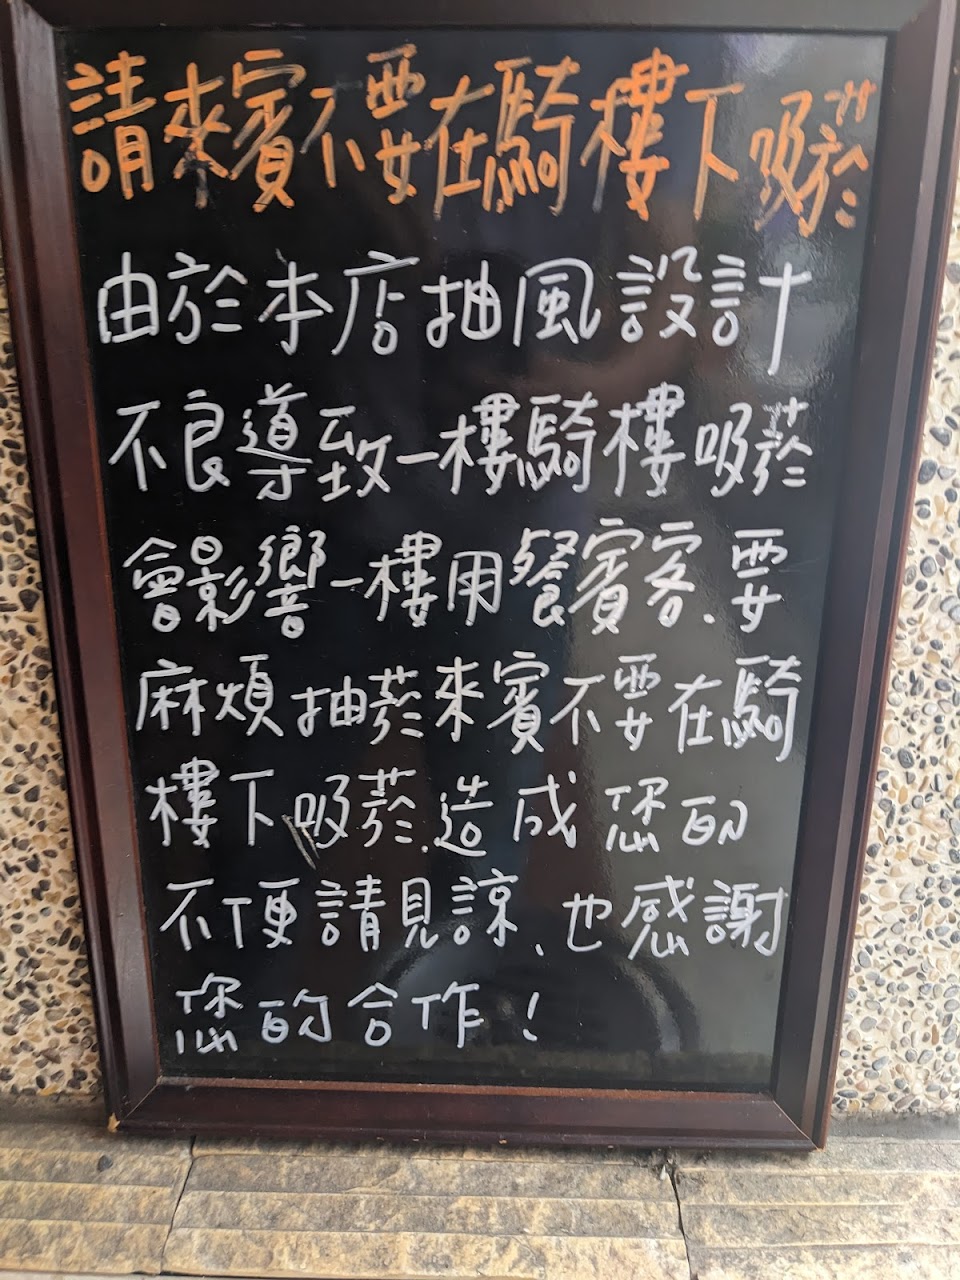 請來賓不要在騎樓下吸菸
由於本店抽風設計
不良導致一樓騎樓吸菸
會影響一樓用餐賓客.要
麻煩抽菸來賓不要在騎
樓下吸菸.造成您的
不便請見諒、也感謝
您的合作!